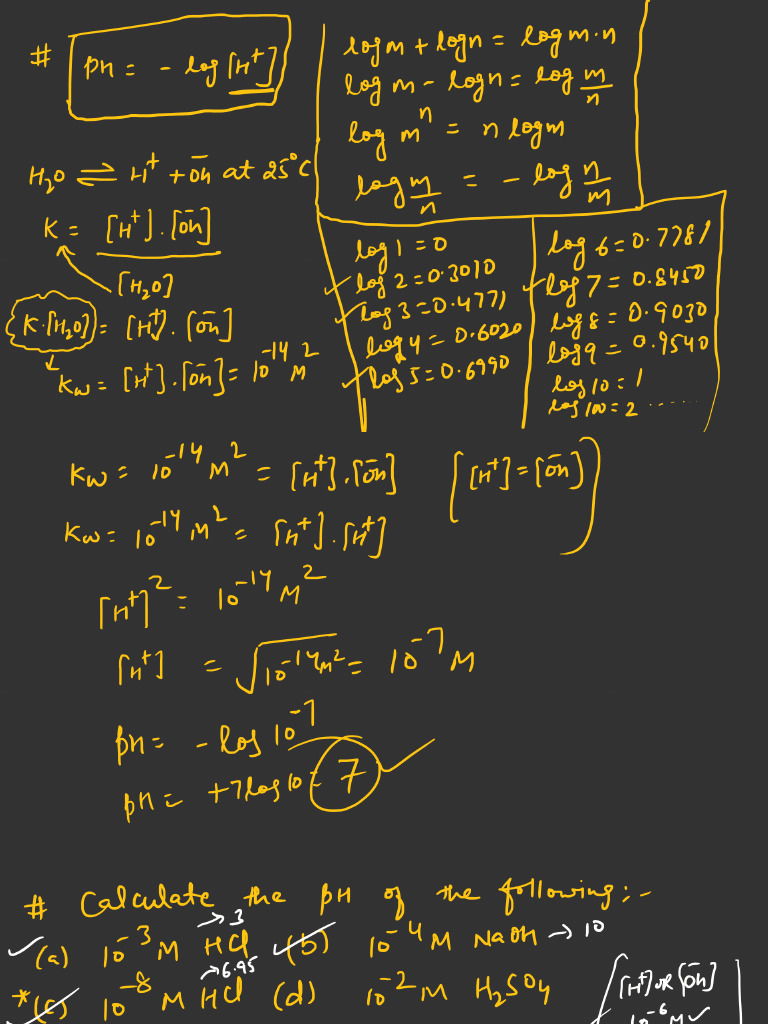 # pH = - log [H⁺]
log m + log n = log m·n
log m - log n = log m/n
log mⁿ = n log m
log m/n = - log n/m
H₂O ⇌ H⁺ + OH⁻ at 25°C
K = [H⁺]·[OH⁻] / [H₂O]
K·[H₂O] = [H⁺]·[OH⁻]
Kw = [H⁺]·[OH⁻] = 10⁻¹⁴ M²
log 1 = 0
log 2 = 0.3010
log 3 = 0.4771
log 4 = 0.6020
log 5 = 0.6990
log 6 = 0.7781
log 7 = 0.8450
log 8 = 0.9030
log 9 = 0.9540
log 10 = 1
log 100 = 2 ......
Kw = 10⁻¹⁴ M² = [H⁺]·[OH⁻] [[H⁺] = [OH⁻]]
Kw = 10⁻¹⁴ M² = [H⁺]·[H⁺]
[H⁺]² = 10⁻¹⁴ M²
[H⁺] = √10⁻¹⁴M² = 10⁻⁷ M
pH = - log 10⁻⁷
pH = +7 log 10 = 7
# Calculate the pH of the following :-
(a) 10⁻³ M HCl → 3 (b) 10⁻⁴ M NaOH → 10
*(c) 10⁻⁸ M HCl → 6.95 (d) 10⁻² M H₂SO₄
[H⁺] OR [OH⁻]
10⁻⁶ M ✓